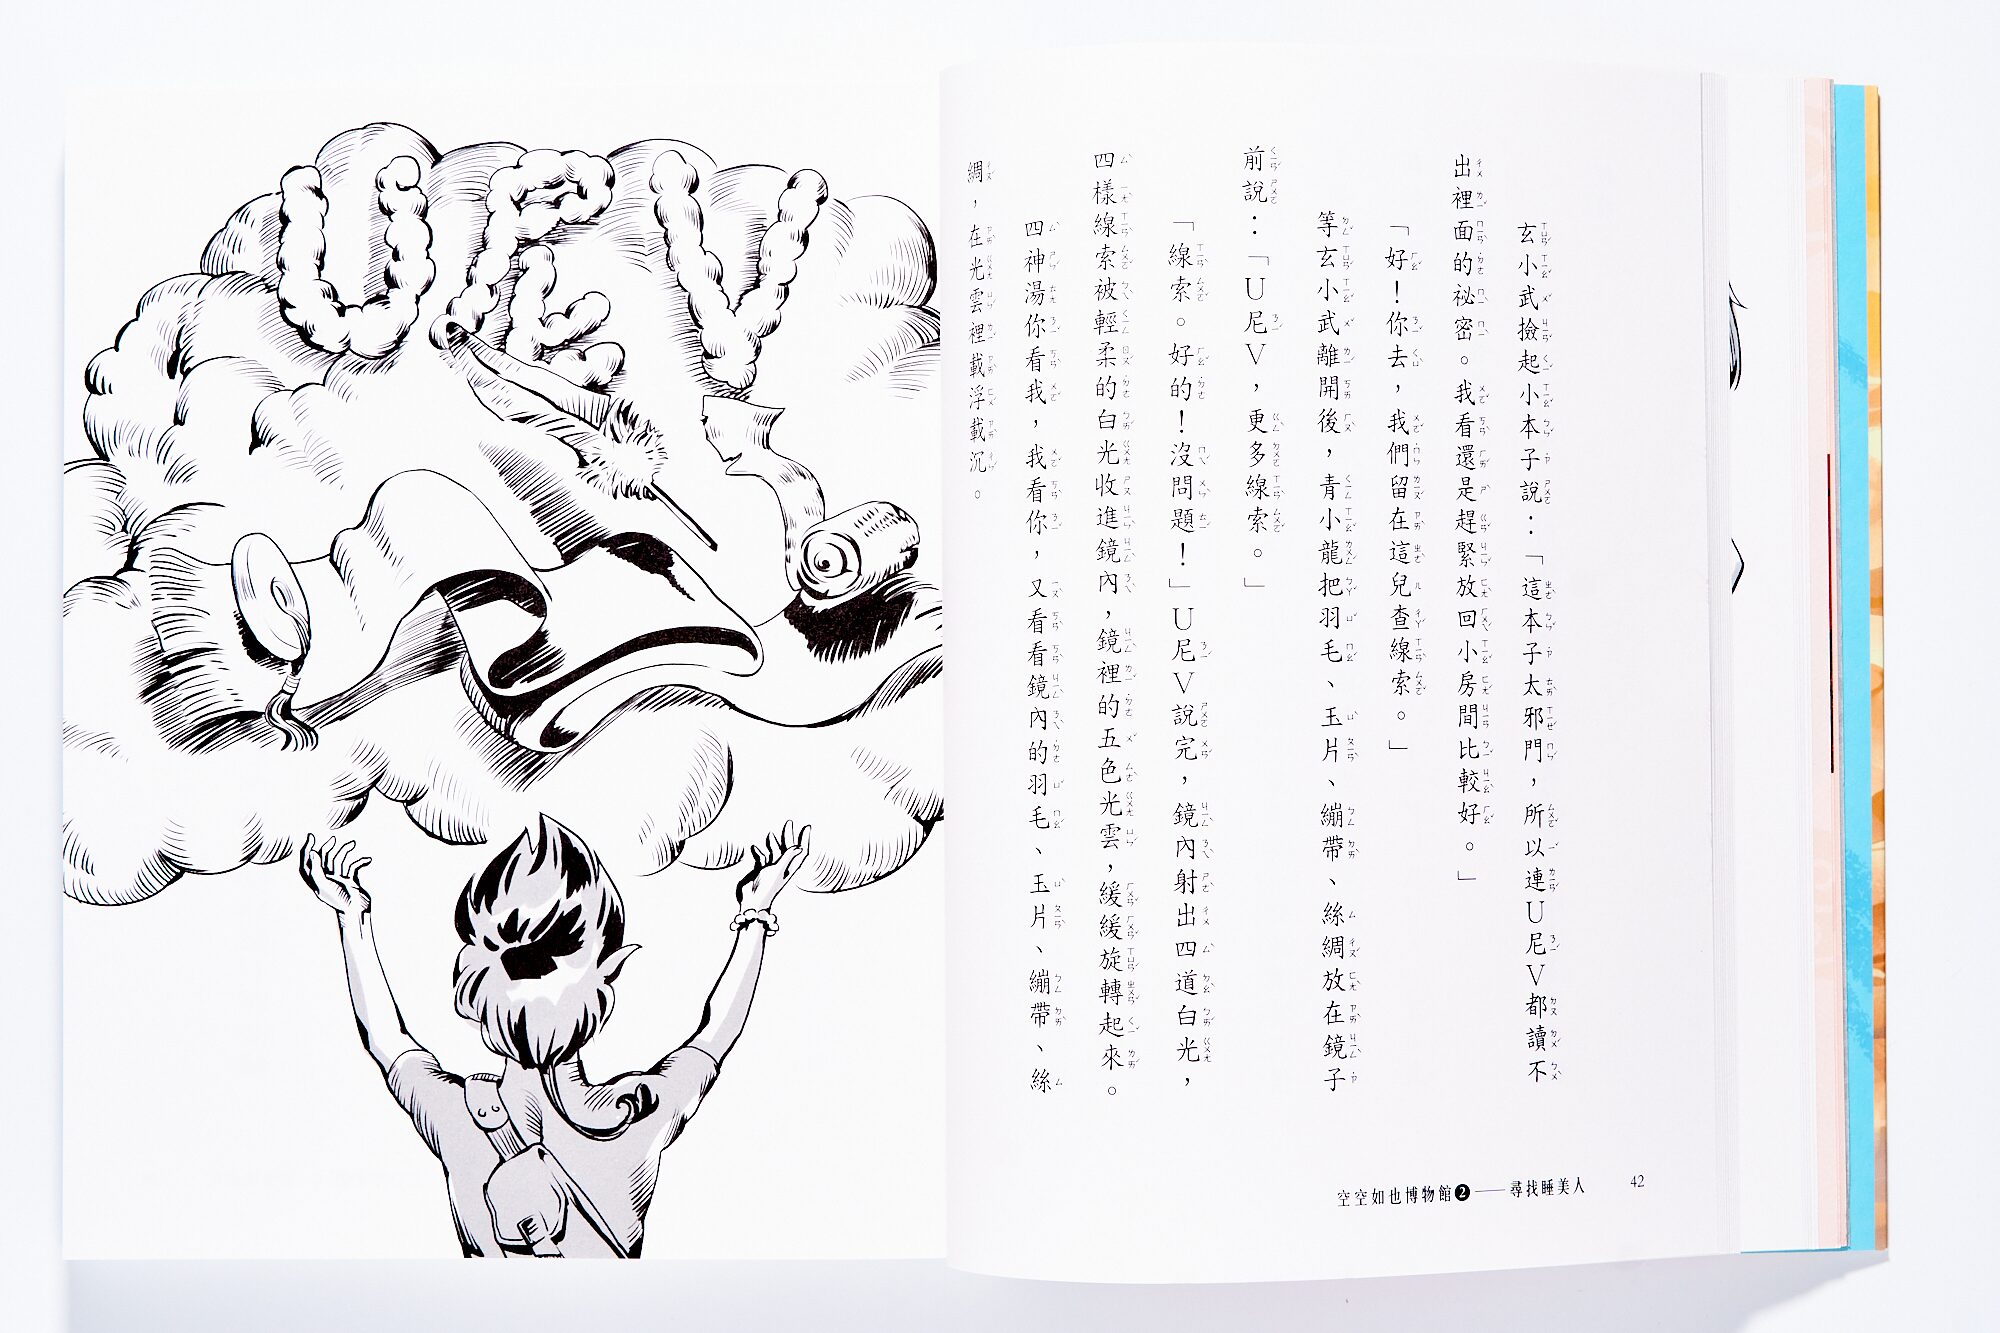 玄小武撿起小本子說：「這本子太邪門，所以連U尼V都讀不
出裡面的祕密。我看還是趕緊放回小房間比較好。」
「好！你去，我們留在這兒查線索。」
等玄小武離開後，青小龍把羽毛、玉片、繃帶、絲綢放在鏡子
前說：「U尼V，更多線索。」
「線索。好的！沒問題！」U尼V說完，鏡內射出四道白光，
四樣線索被輕柔的白光收進鏡內，鏡裡的五色光雲，緩緩旋轉起來。
四神湯你看我，我看你，又看看鏡內的羽毛、玉片、繃帶、絲
綢，在光雲裡載浮載沉。
空空如也博物館2——尋找睡美人 42
U尼V